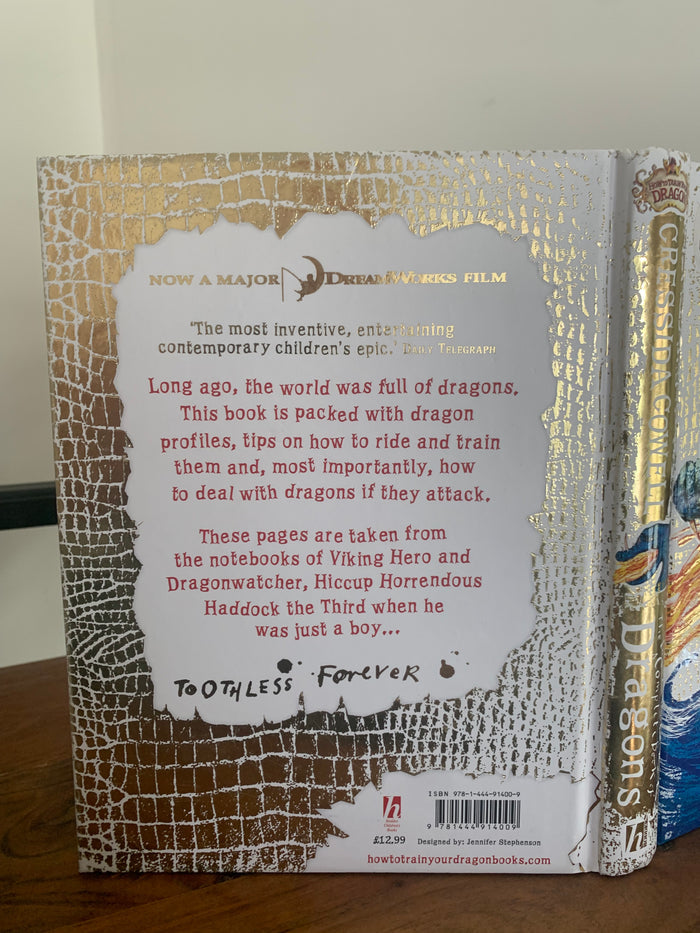 NOW A MAJOR DREAMWORKS FILM
'The most inventive, entertaining
contemporary children's epic.' DAILY TELEGRAPH
Long ago, the world was full of dragons.
This book is packed with dragon
profiles, tips on how to ride and train
them and, most importantly, how
to deal with dragons if they attack.
These pages are taken from
the notebooks of Viking Hero and
Dragonwatcher, Hiccup Horrendous
Haddock the Third when he
was just a boy...
TOOTHLESS Forever
ISBN 978-1-444-91400-9
9 781444 914009
h
Hodder
Children's
Books
£12.99
Designed by: Jennifer Stephenson
howtotrainyourdragonbooks.com
HOW TO TRAIN YOUR
DRAGON
CRESSIDA COWELL
Dragons
h